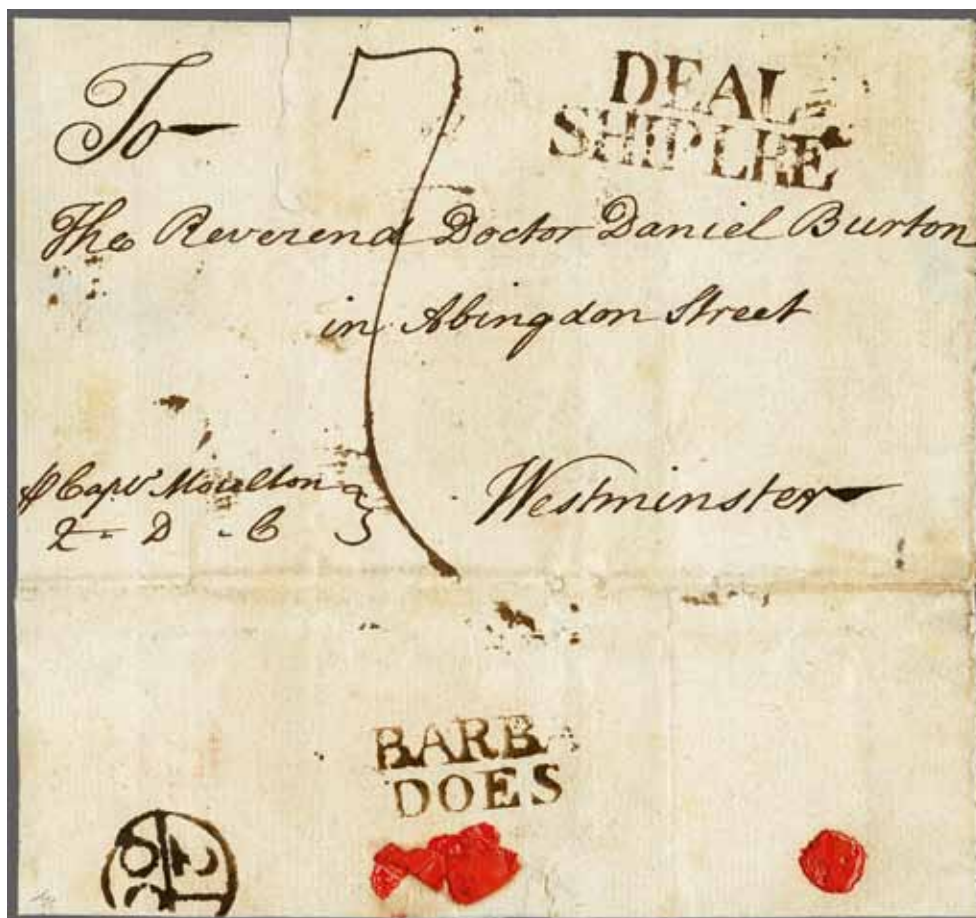 To
DEAL
SHIP LRE
7
The Reverend Doctor Daniel Burton
in Abingdon Street
Westminster
Moulton
Q. D. C
BARBA
DOES